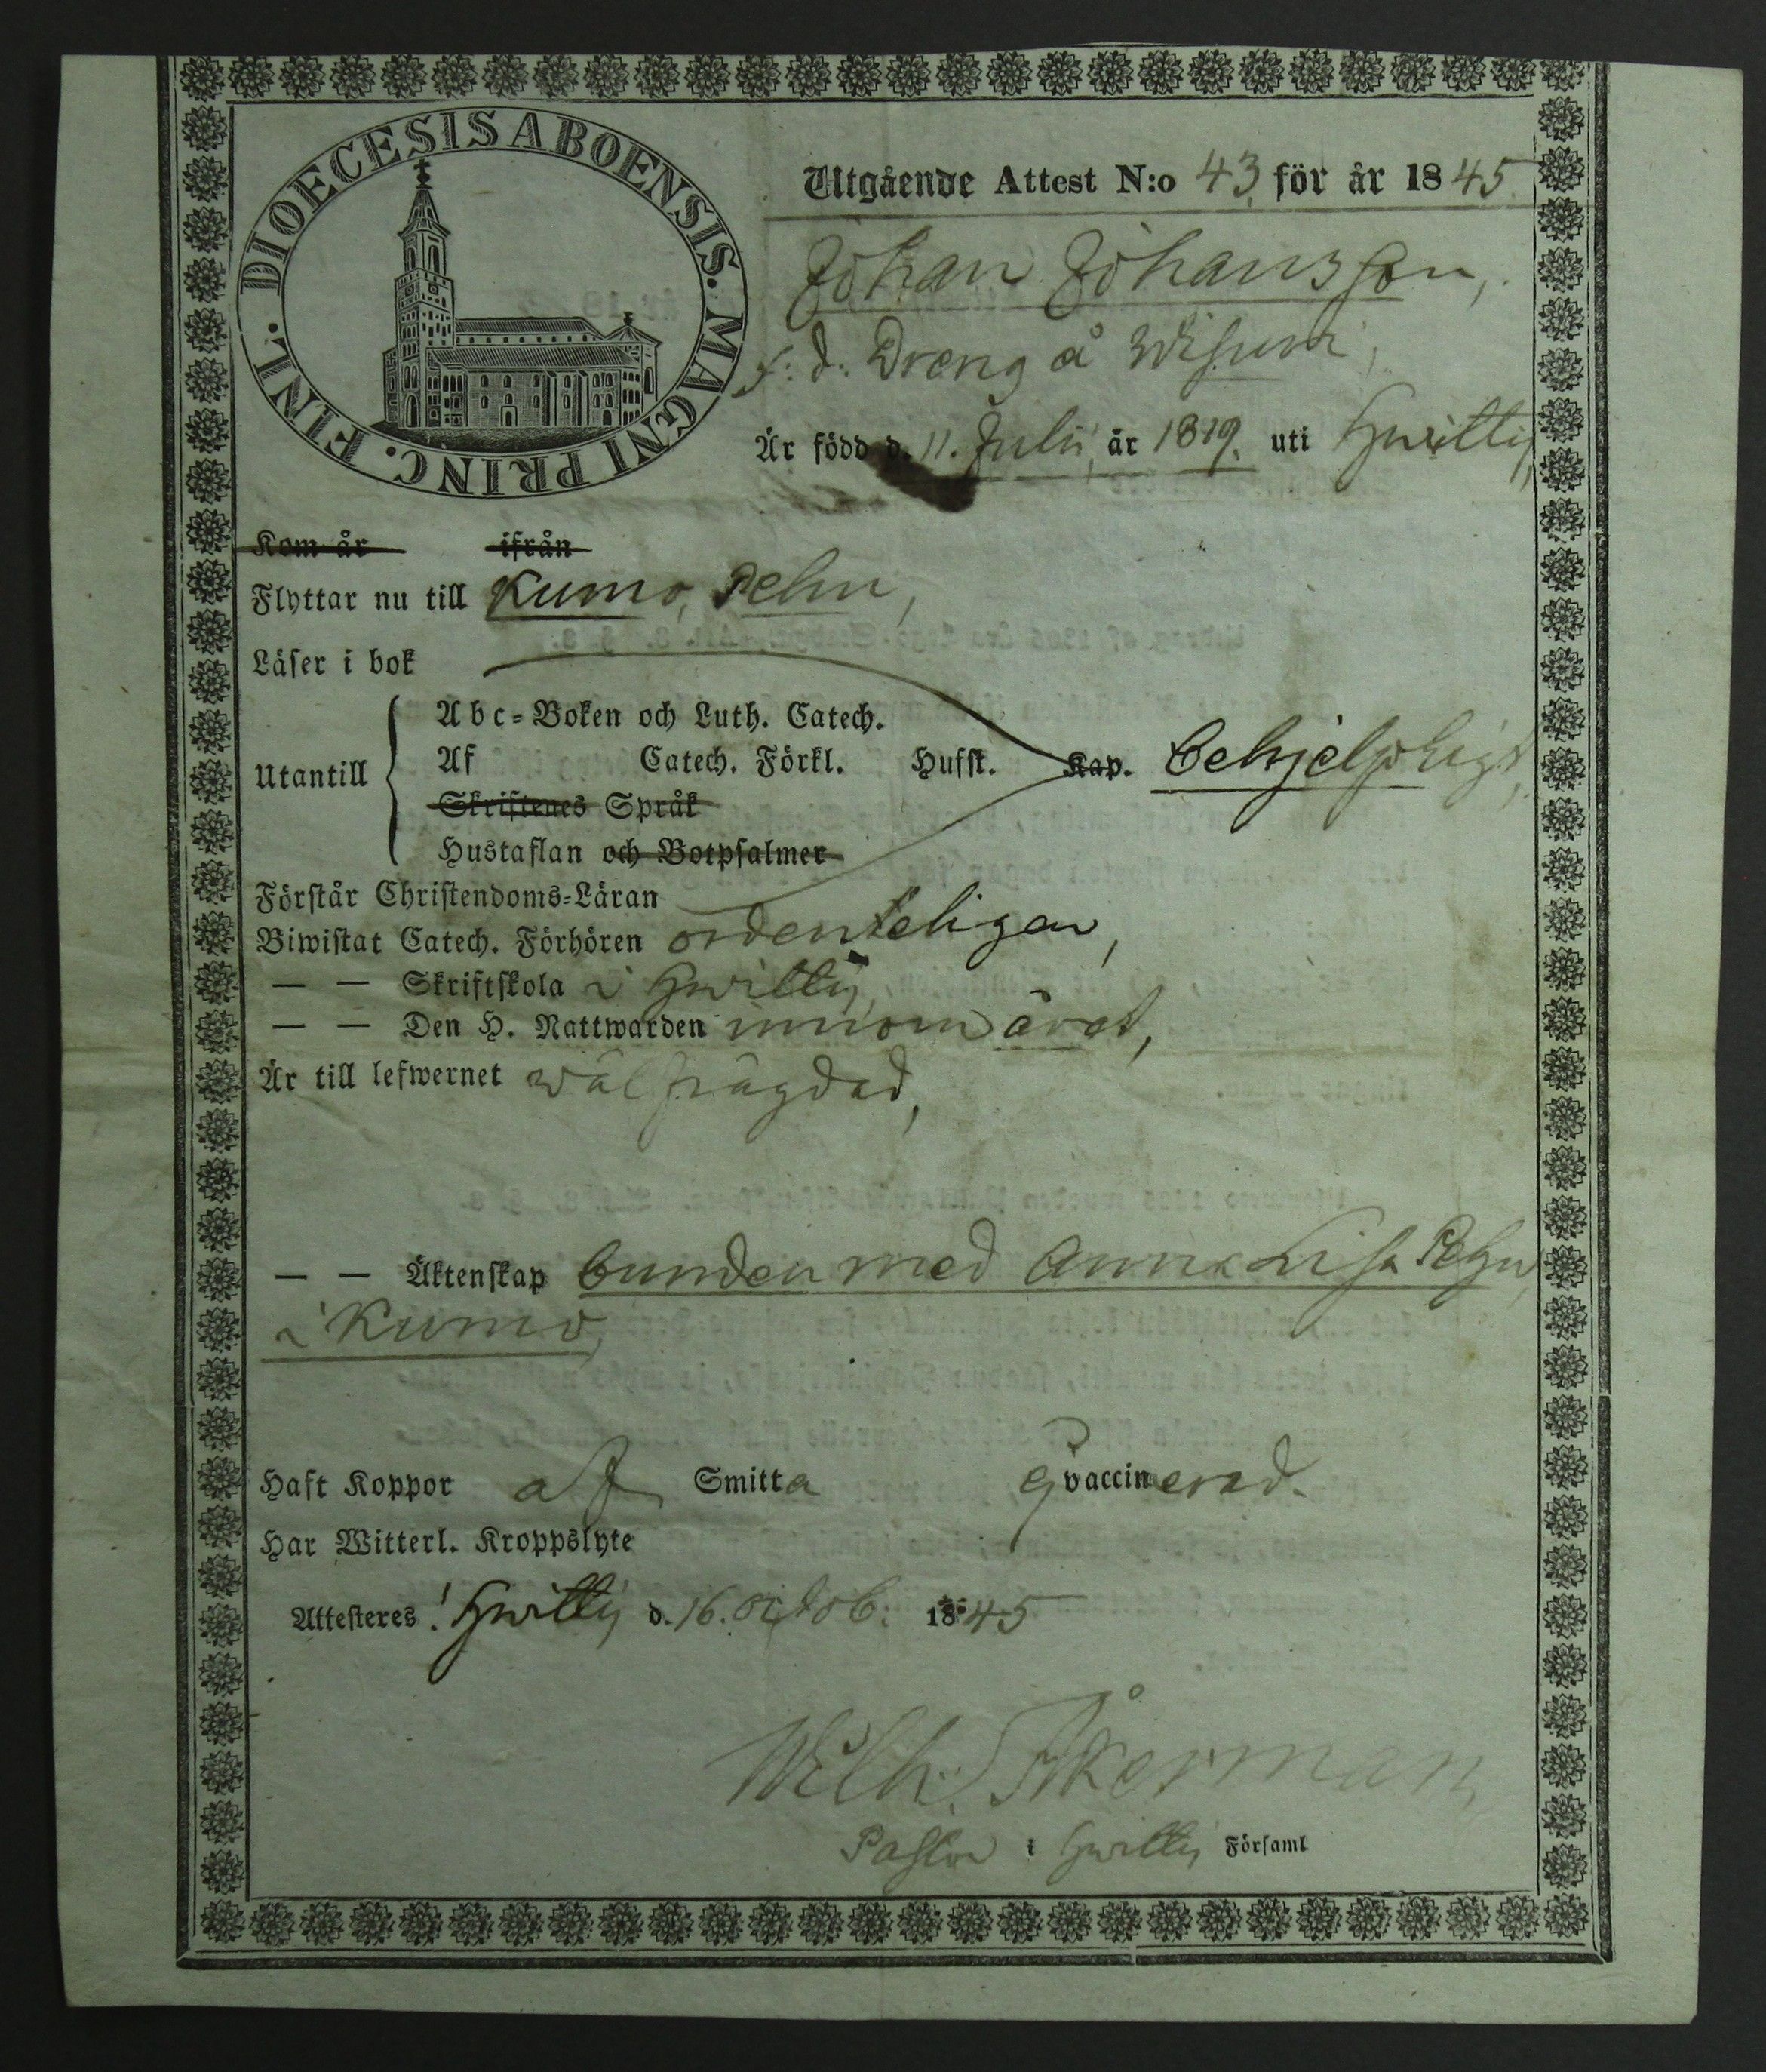 DIOECESIS ABOENSIS. MAGNI PRINC. FINL.
Utgående Attest N:o 43 för år 1845
Johan Johansson,
f: d: Dreng å
Är född d. 11. Julii, år 1819. uti Hwittis,
Kom år ifrån
Flyttar nu till Kumo, Pehu,
Läser i bok
Utantill
Abc-Boken och Luth. Catech.
Af Catech. Förkl. Hufst. Kap. behjelpligt,
Skriftenes Språk
Hustaflan och Botpsalmer
Förstår Christendoms-Läran
Biwistat Catech. Förhören ordenteligen,
— — Skriftskola i Hwittis,
— — Den H. Nattwarden innom året,
Är till lefwernet wälfrägdad,
— — Äktenskap bunden med Anna Lisa Pehu,
i Kumo,
Haft Koppor af Smitta ej vaccinerad.
Har Witterl. Kroppslyte
Attesteres! Hwittis d. 16. Octob: 1845
Wilh. Åkerman
Pastor i Hwittis Församl